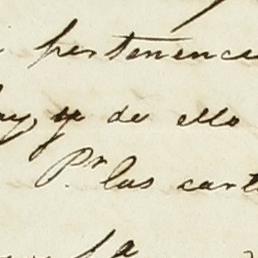 pertenence
hay, y de ello
Pr. las cart